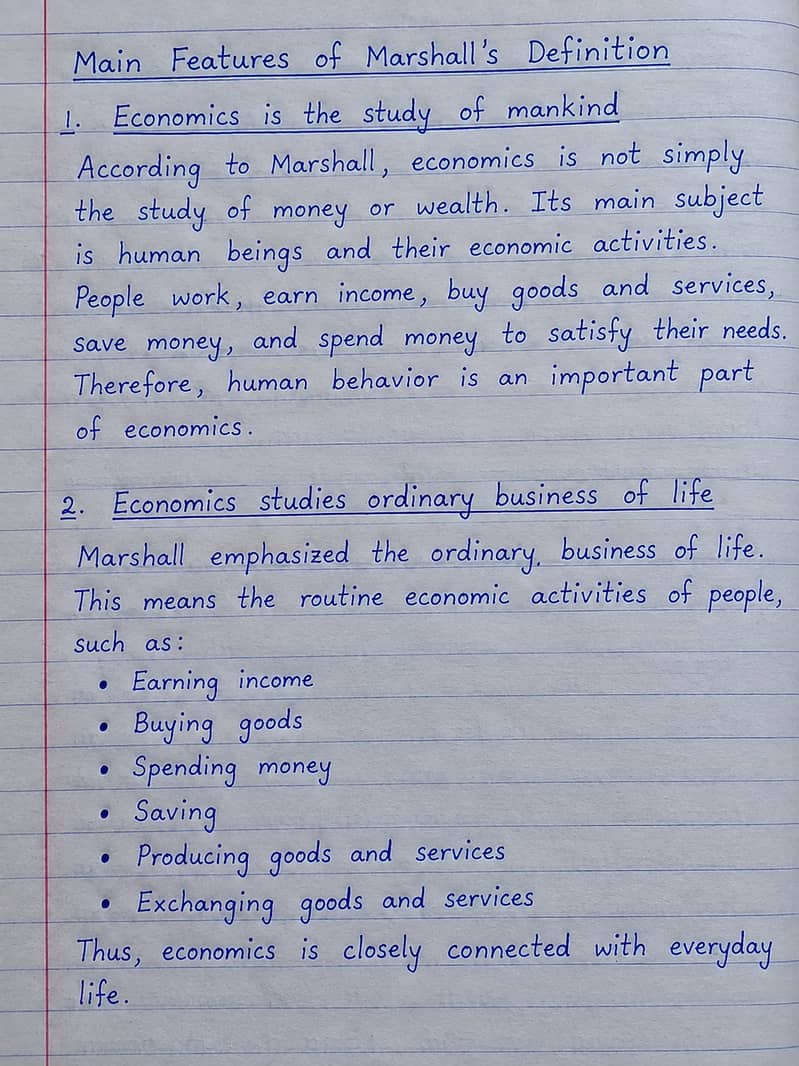 Main Features of Marshall's Definition
1. Economics is the study of mankind
According to Marshall, economics is not simply
the study of money or wealth. Its main subject
is human beings and their economic activities.
People work, earn income, buy goods and services,
save money, and spend money to satisfy their needs.
Therefore, human behavior is an important part
of economics.
2. Economics studies ordinary business of life
Marshall emphasized the ordinary, business of life.
This means the routine economic activities of people,
such as:
• Earning income
• Buying goods
• Spending money
• Saving
• Producing goods and services
• Exchanging goods and services
Thus, economics is closely connected with everyday
life.